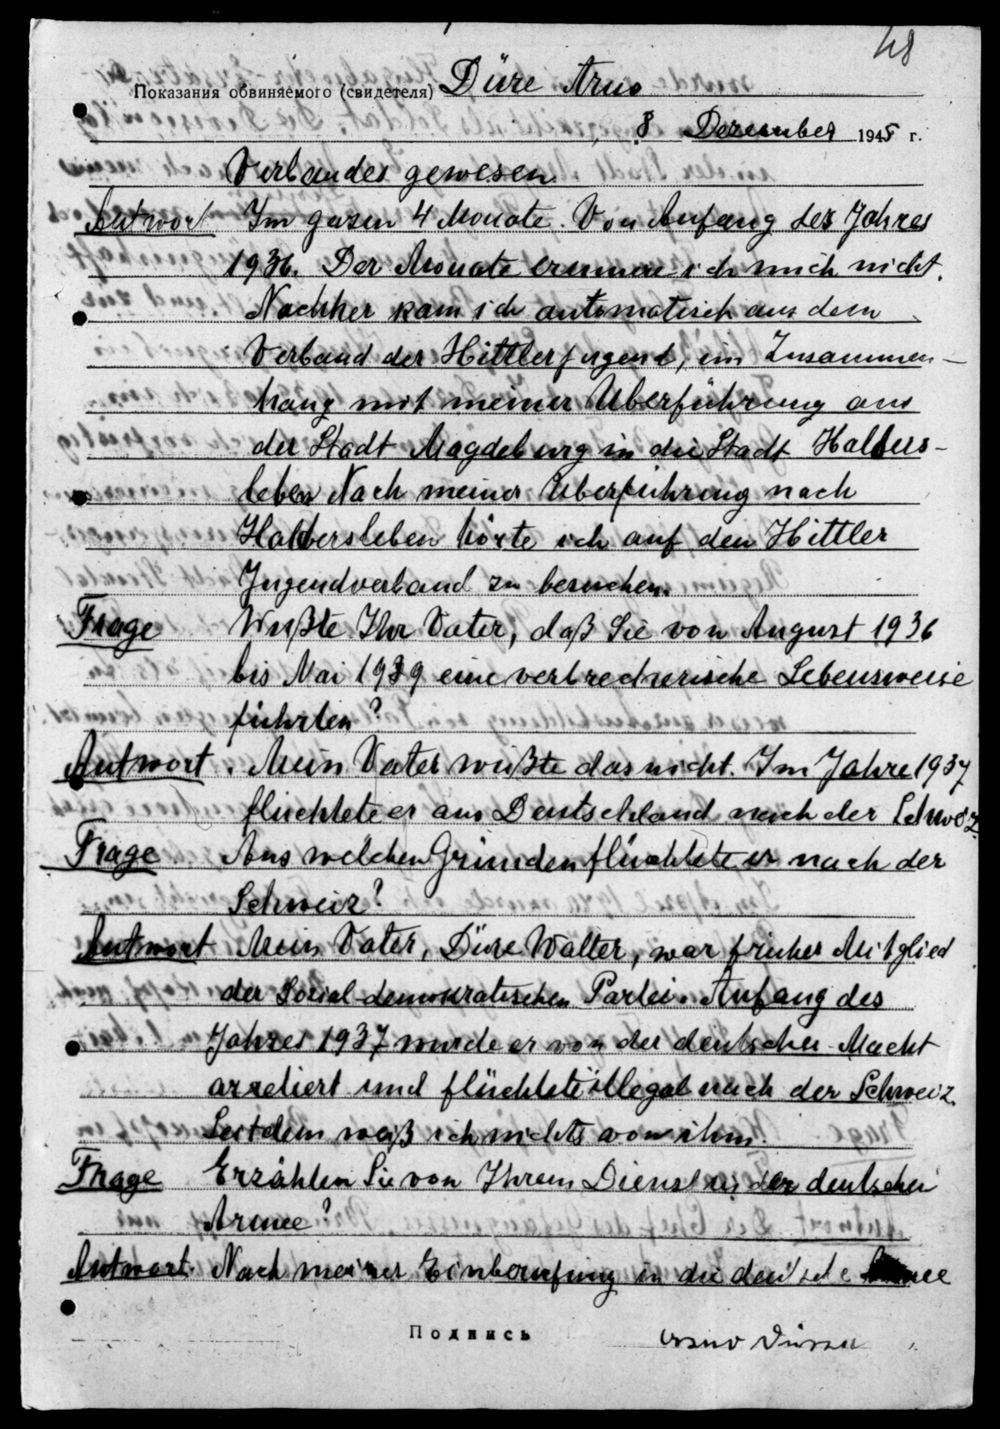 48
Показания обвиняемого (свидетеля) Düre Arno
8 Dezember 1945 г.
Verbandes gewesen.
Antwort Im ganzen 4 Monate. Von Anfang des Jahres
1936. Der Monate erinnere ich mich nicht.
Nachher kam ich automatisch aus dem
Verband der Hittlerjugend, im Zusammen-
hang mit meiner Überführung aus
der Stadt Magdeburg in die Stadt Halders-
leben Nach meiner Überführung nach
Haldersleben hörte ich auf den Hittler
Jugendverband zu besuchen.
Frage Wußte Ihr Vater, daß Sie von August 1936
bis Mai 1939 eine verbrecherische Lebensweise
führten?
Antwort. Mein Vater wußte das nicht. Im Jahre 1937
flüchtete er aus Deutschland nach der Schweiz
Frage Aus welchen Gründen flüchtete er nach der
Schweiz?
Antwort Mein Vater, Düre Walter, war früher Mitglied
der Sozial-demokratischen Partei. Anfang des
Jahres 1937 wurde er von der deutschen Macht
arretiert und flüchtete illegal nach der Schweiz.
Seitdem weiß ich nichts von ihm.
Frage Erzählen Sie von Ihrem Dienst in der deutschen
Armee?
Antwort. Nach meiner Einberufung in die deutsche
Подпись Arno